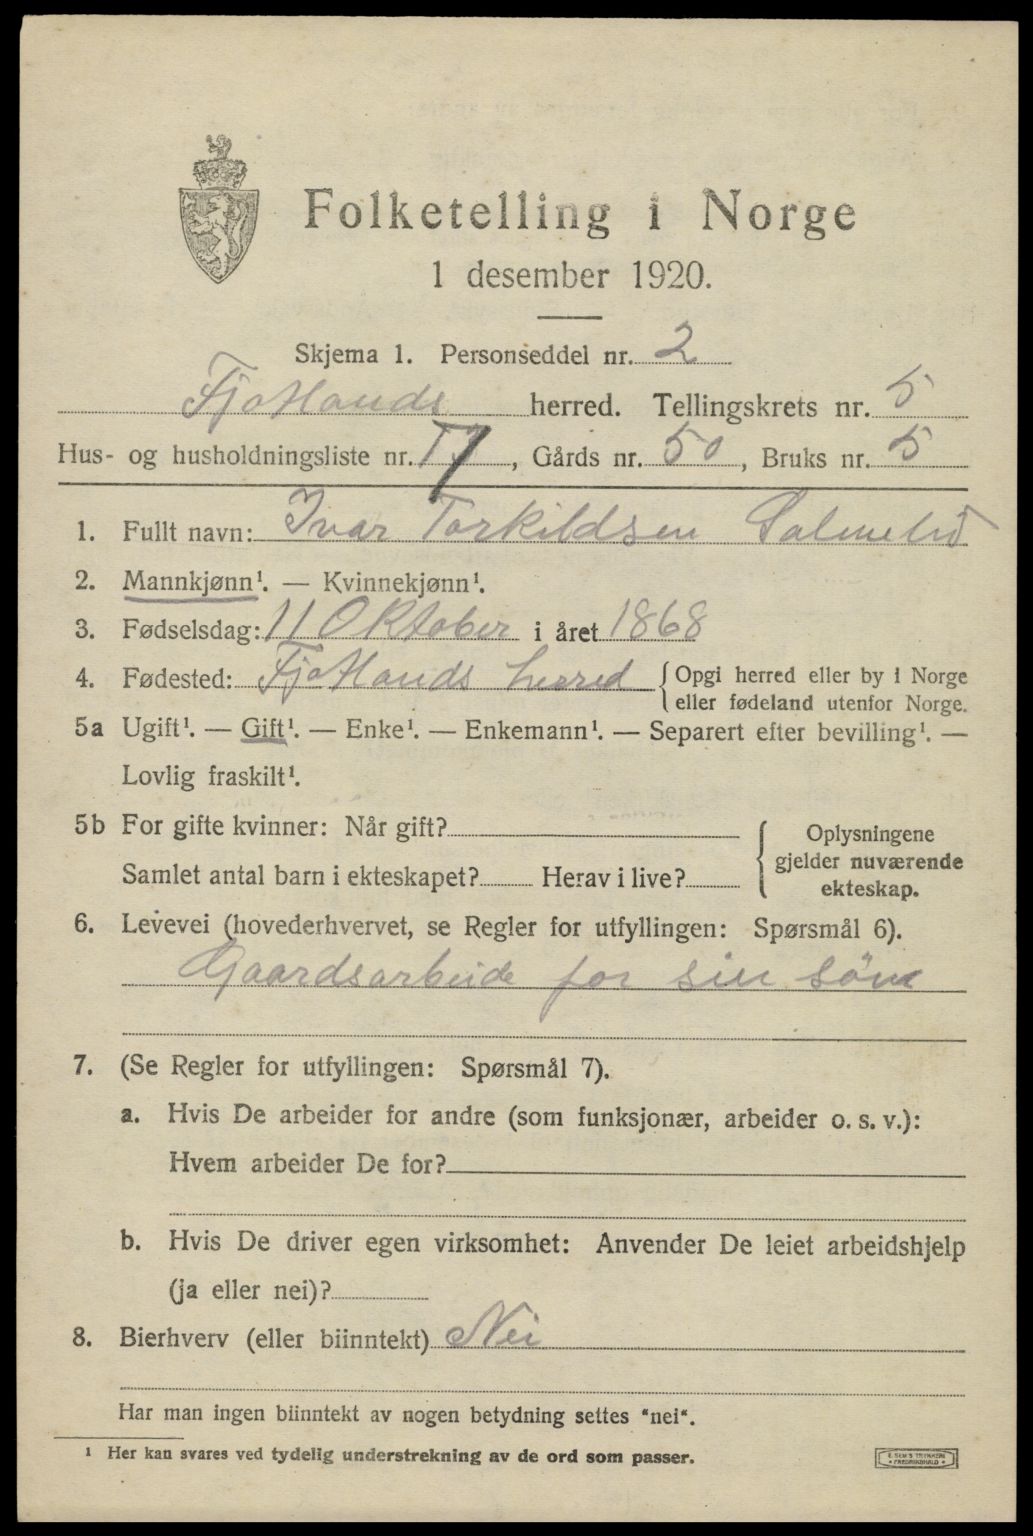 Folketelling i Norge
1 desember 1920.
Skjema 1. Personseddel nr. 2
Fjotlands herred. Tellingskrets nr. 5
Hus- og husholdningsliste nr. 17, Gårds nr. 50, Bruks nr. 5
1. Fullt navn: Ivar Torkildsen Salmelid
2. Mannkjønn¹. — Kvinnekjønn¹.
3. Fødselsdag: 11 Oktober i året 1868
4. Fødested: Fjotlands herred { Opgi herred eller by i Norge
eller fødeland utenfor Norge.
5a Ugift¹. — Gift¹. — Enke¹. — Enkemann¹. — Separert efter bevilling¹. —
Lovlig fraskilt¹.
5b For gifte kvinner: Når gift?
Samlet antal barn i ekteskapet? Herav i live?
Oplysningene
gjelder nuværende
ekteskap.
6. Levevei (hovederhvervet, se Regler for utfyllingen: Spørsmål 6).
Gaardsarbeide for sin søn
7. (Se Regler for utfyllingen: Spørsmål 7).
a. Hvis De arbeider for andre (som funksjonær, arbeider o. s. v.):
Hvem arbeider De for?
b. Hvis De driver egen virksomhet: Anvender De leiet arbeidshjelp
(ja eller nei)?
8. Bierhverv (eller biinntekt) Nei
Har man ingen biinntekt av nogen betydning settes "nei".
¹ Her kan svares ved tydelig understrekning av de ord som passer.